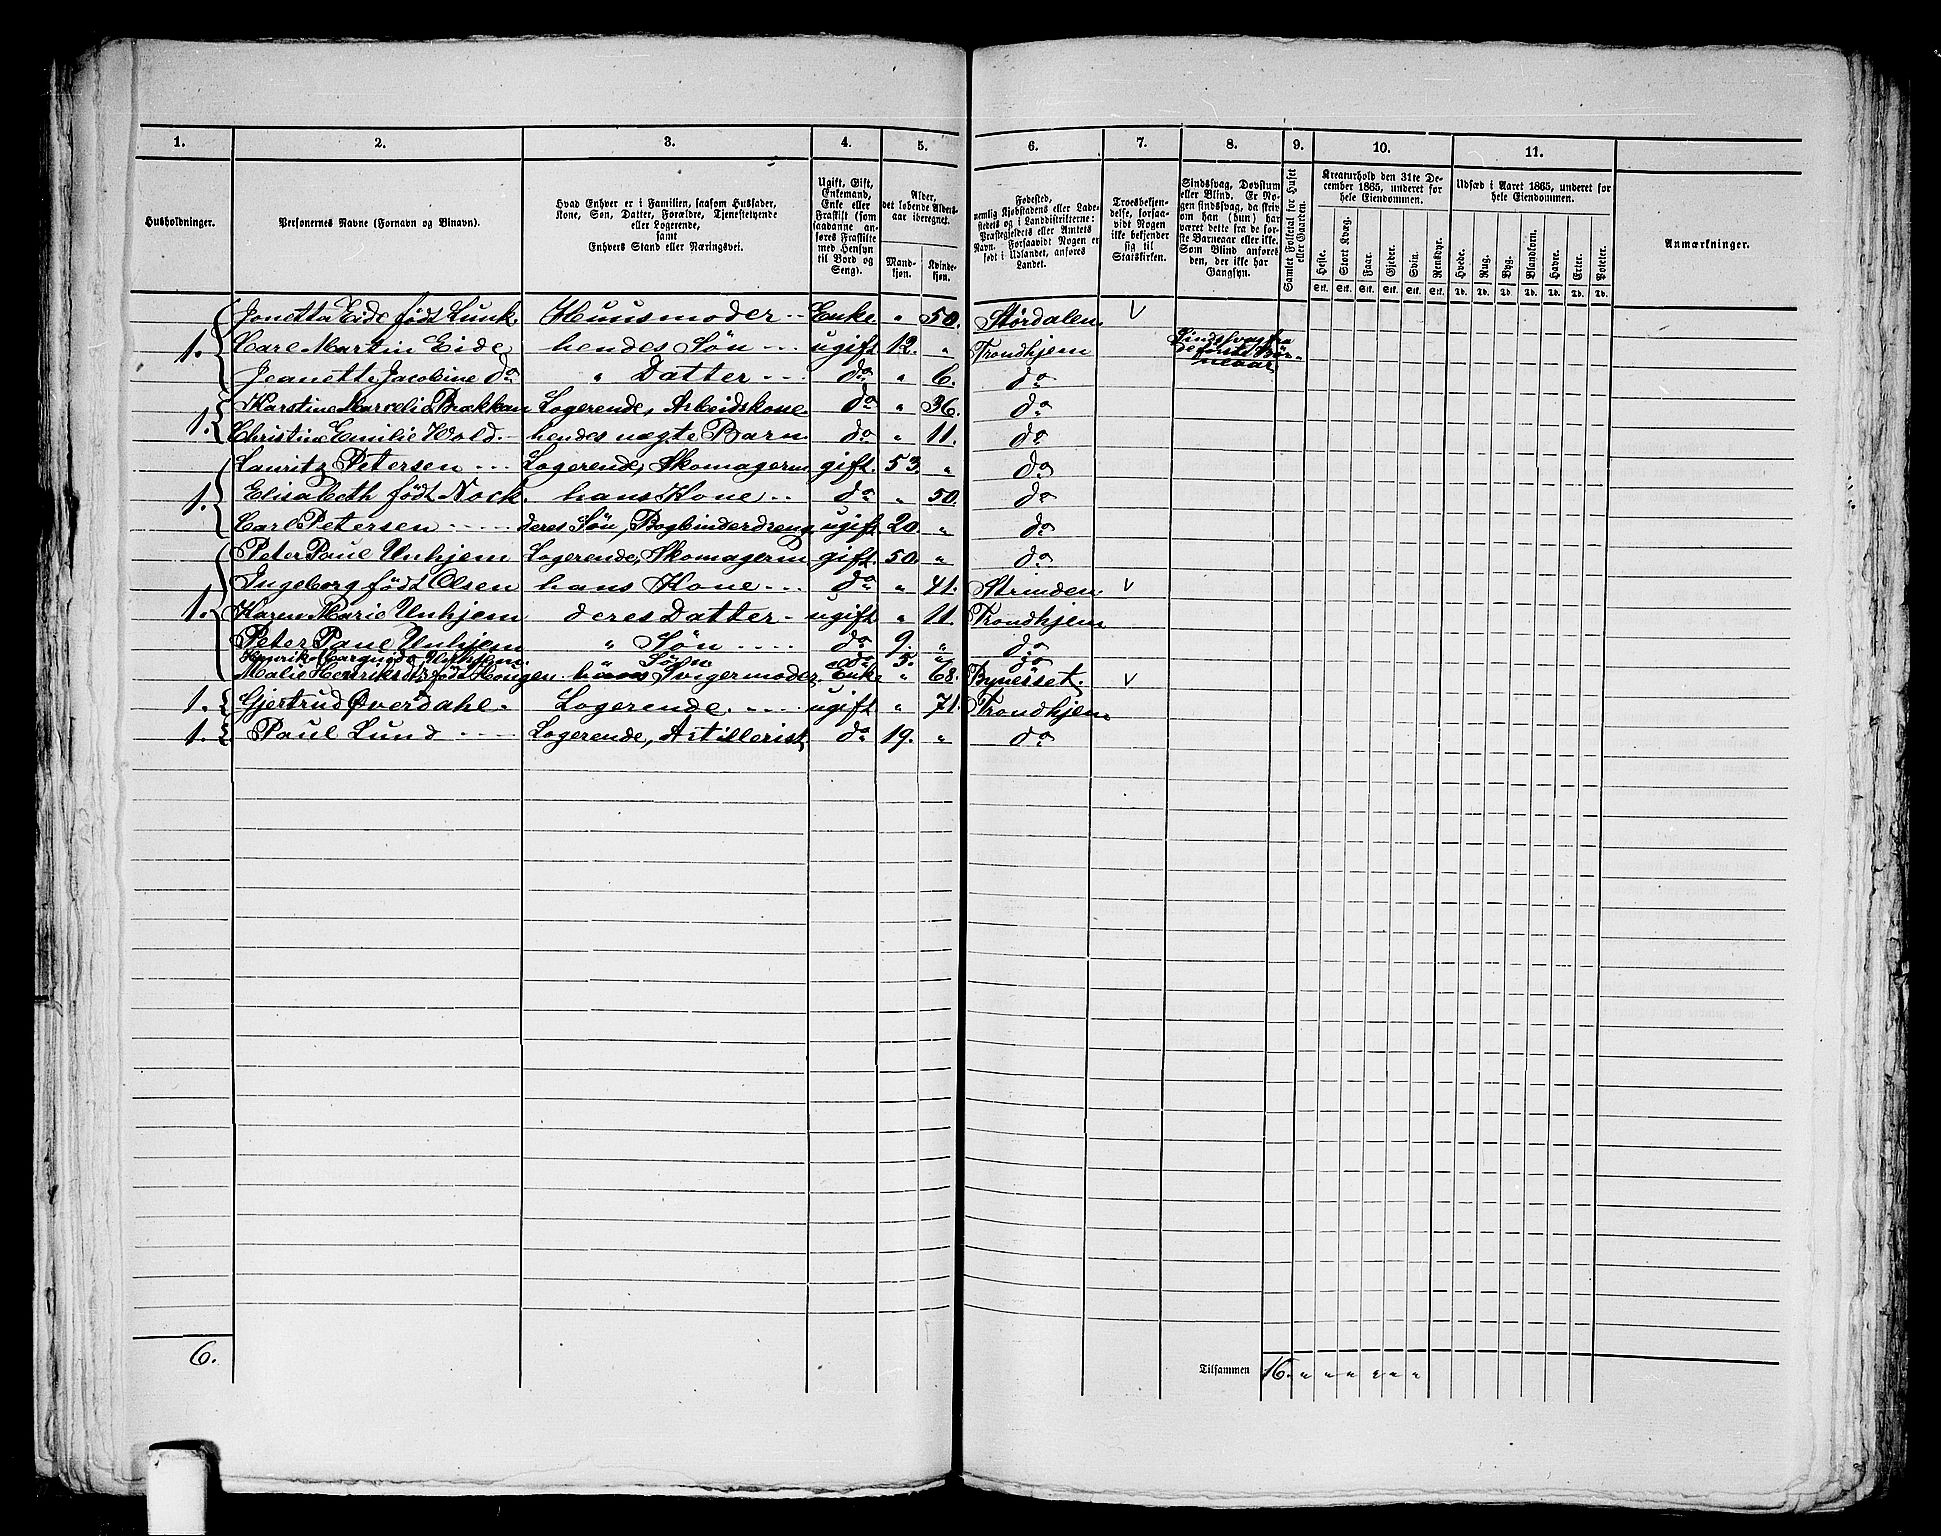 1. 2. 3. 4. 5. 6. 7. 8. 9. 10. 11.
Husholdninger.
Personernes Navne (Fornavn og Binavn).
Hvad Enhver er i Familien, saasom Husfader,
Kone, Søn, Datter, Forældre, Tjenestetyende
eller Logerende,
samt
Enhvers Stand eller Næringsvei.
Ugift, Gift,
Enkemand,
Enke eller
Fraskilt (som
saadanne an-
føres Fraskilte
med Hensyn
til Bord og
Seng).
Alder,
det løbende Alders-
aar iberegnet.
Mand-
kjøn.
Kvinde-
kjøn.
Fødested,
nemlig Kjøbstadens eller Lade-
stedets og i Landdistrikterne:
Præstegjeldets eller Amtets
Navn. Forsaavidt Nogen er
født i Udlandet, anføres
Landet.
Troesbekjen-
delse, forsaa-
vidt Nogen
ikke bekjender
sig til
Statskirken.
Sindssvag, Døvstum
eller Blind. Er No-
gen sindssvag, da skriv
om han (hun) har
været dette fra de før-
ste Barneaar eller ikke.
Som Blind anføres
den, der ikke har
Gangsyn.
Samlet Folketal for Huset
eller Gaarden.
Kreaturhold den 31te De-
cember 1865, underet for
hele Eiendommen.
Heste. Stort Kvæg. Faar. Gjeder. Svin. Rensdyr.
Stk. Stk. Stk. Stk. Stk. Stk.
Udsæd i Aaret 1865, underet for
hele Eiendommen.
Hvede. Rug. Byg. Blandkorn. Havre. Erter. Poteter.
Td. Td. Td. Td. Td. Td. Td.
Anmærkninger.
Jonetta Eide født Kunk. Huusmoder Enke " 50. Størdalen. V
1. Carl Martin Eide hendes Søn ugift 12. " Trondhjem Sindssvag fra
de første Bar-
neaar
Jeanette Jacobine do " Datter do " 6. do
Karstine Marcelie Brækkan Logerende, Arbeidskone do " 36. do
1. Christine Emilie Wold hendes uægte Barn do " 11. do
Lauritz Petersen Logerende, Skomagerm. gift. 53. " do
1. Elisabeth født Nock. hans Kone do " 50. do
Carl Petersen deres Søn, Bogbinderdreng ugift 20. " do
Peter Paul Unhjem Logerende, Skomagerm gift. 50. " do
Ingeborg født Olsen hans Kone do " 41. Strinden. V
1. Karen Marie Unhjem deres Datter ugift " 11. Trondhjem
Peter Paul Unhjem " Søn do 9. " do
Henrik Unhjem. Søn do 5. " do
Malie Henriksdtr født Hongen. hans Svigermoder Enke " 68. Bynesset. V
1. Gjertrud Øverdahl Logerende. ugift " 71. Trondhjem
1. Paul Lund Logerende, Artillerist do 19. " do
6. Tilsammen 16. " " " " " "